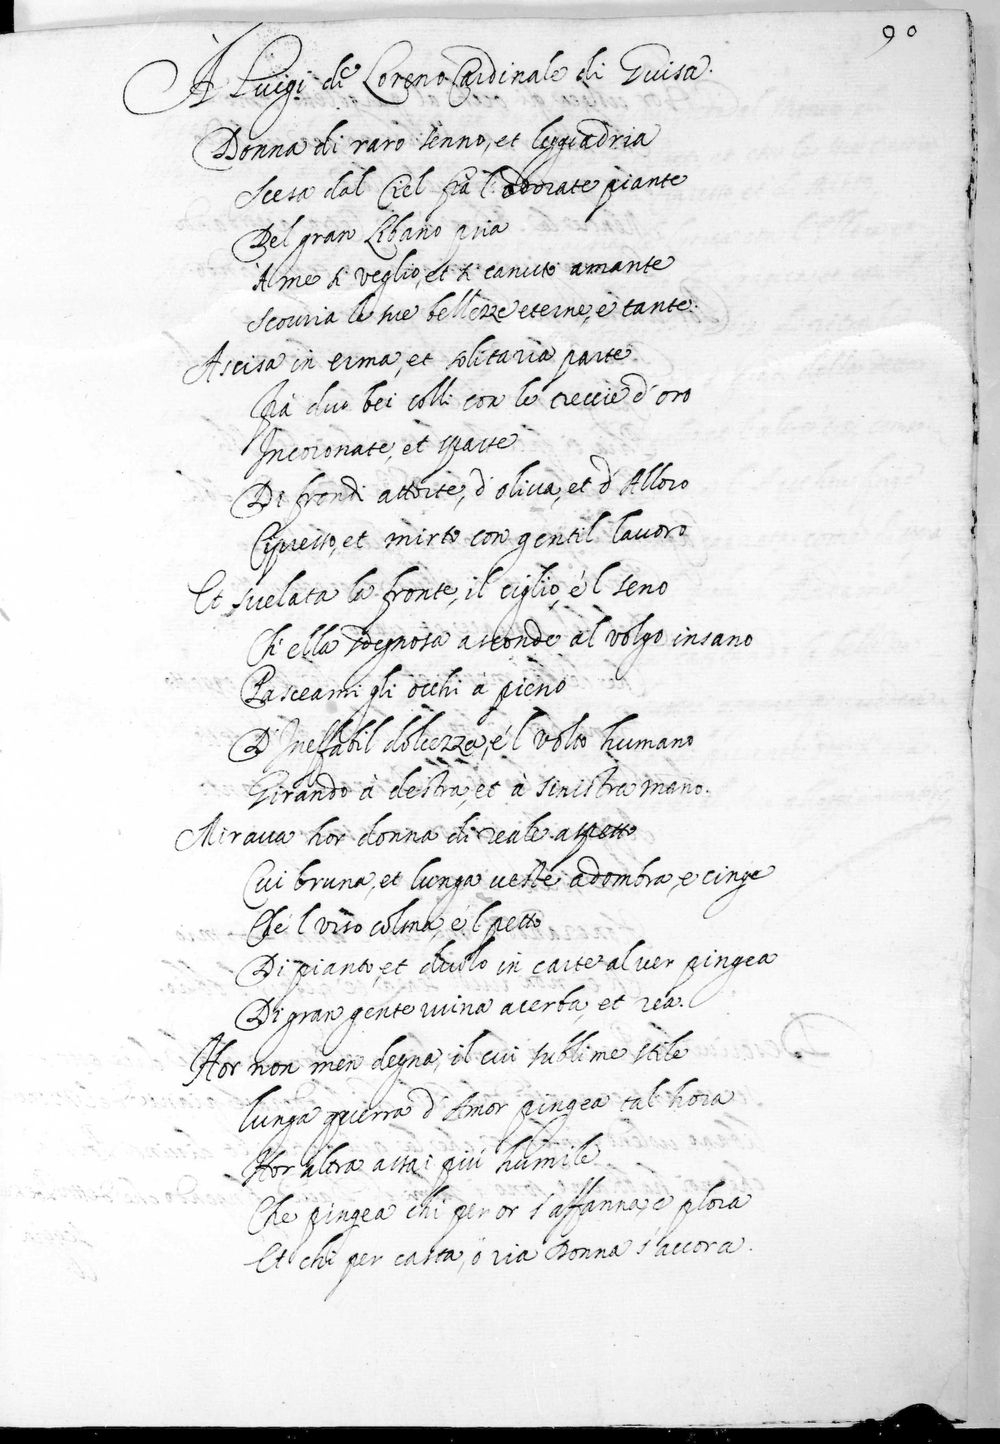 90
À Luigi di Loreno Cardinale di Guisa.
Donna di raro senno, et leggiadria
Scesa dal Ciel frà l'odorate piante
Del gran Libano pria
A me sì veglio, et sì canuto amante
Scouria le sue bellezze eterne, e tante.
Ascisa in erma, et solitaria parte
Frà duo bei colli con le treccie d'oro
Incoronate, et sparte
Di frondi attorte, d'oliua, et d'Alloro
Cipresso, et mirto con gentil lauoro
Et suelata la fronte, il ciglio, e'l seno
Ch'ella sdegnosa asconde al volgo insano
Pasceami gli occhi à pieno
D'Ineffabil dolcezza, e'l volto humano
Girando à destra, et à sinistra mano.
Miraua hor donna di reale aspetto
Cui bruna, et lunga ueste adombra, e cinge
Che'l viso colma, e'l petto
Di pianto, et duolo in carte al ver pingea
Di gran gente ruina acerba, et rea.
Hor non men degna, il cui sublime stile
lunga guerra d'Amor pingea tal hora
Hor altra assai più humile
Che pingea chi per or s'affanna, e plora
Et chi per casta, ò ria Donna s'accora.